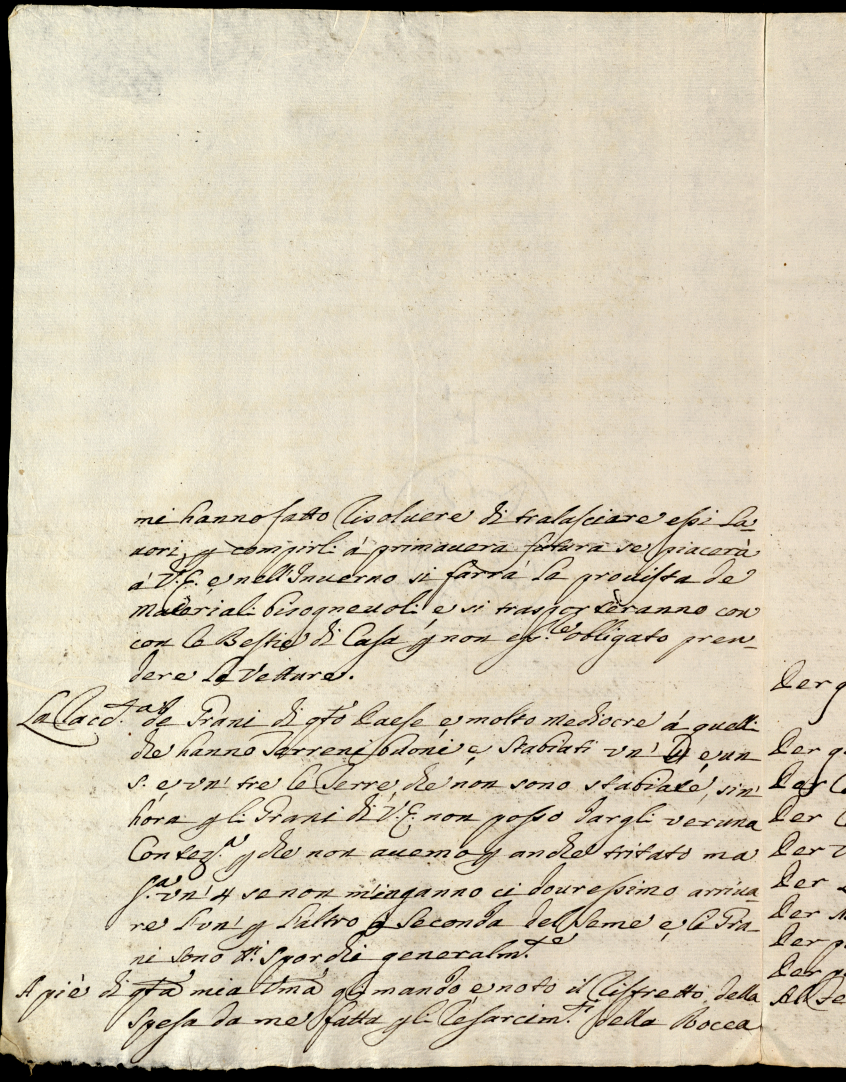 mi hanno fatto risoluere di tralasciare essi La-
uori, p compirli à primauera futura se piacerà
à V.E. e nell'Inuerno si farrà la prouista de
materiali bisogneuoli e si trasporteranno con
con le Bestie di Casa p non ess.e obligato pren-
dere le Vetture.
La Racc.ta de Grani di q.to Paese e molto mediocre à quelli
che hanno Terreni buoni e stabiati vn' 4 e un
s. e vn' tre le Terre che non sono stabiate, sin'
hora p li Grani di V.E. non posso dargli veruna
Contez.a p che non auemo p anche tritato ma
vn' 4 se non m'inganno ci douressimo arriua-
re l'vn' p l'altro à seconda del seme e li Gra-
ni sono sporchi generalm.te
A piè di q.ta mia mando e noto il Ristretto della
spesa da me fatta p li resarcim.ti della Rocca
Per q
Per q
Per
Per
Per
Per
Per
Per p
Per
Al